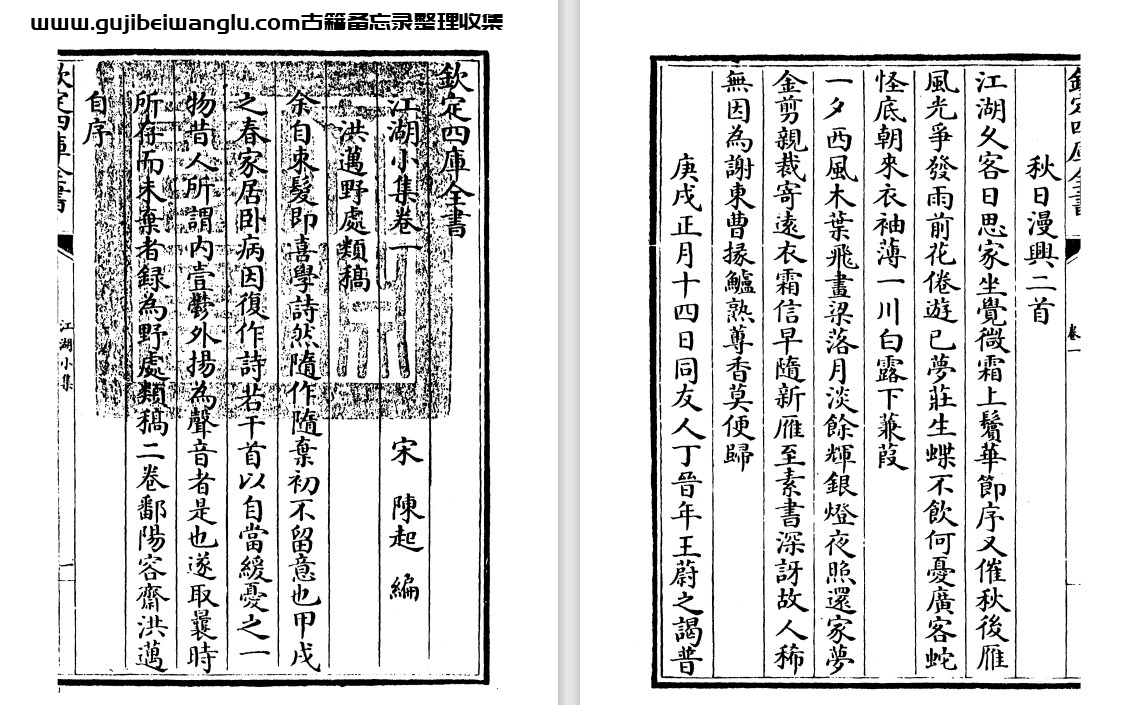 www.gujibeiwanglu.com古籍备忘录整理收集
欽定四庫全書
江湖小集卷一 宋 陳起 編
洪邁野處類稿
余自束髮即喜學詩然隨作隨棄初不留意也甲戌
之春家居卧病因復作詩若干首以自當緩憂之一
物昔人所謂内壹欝外揚為聲音者是也遂取曩時
所存而未棄者録為野處類稿二卷鄱陽容齋洪邁
自序
欽定四庫全書
江湖小集
一
欽定四庫全書
卷一
秋日漫興二首
江湖久客日思家坐覺微霜上鬢華節序又催秋後雁
風光爭發雨前花倦遊已夢莊生蝶不飲何憂廣客蛇
怪底朝來衣袖薄一川白露下蒹葭
一夕西風木葉飛畫梁落月淡餘輝銀燈夜照還家夢
金剪親裁寄遠衣霜信早隨新雁至素書深訝故人稀
無因為謝東曹掾鱸熟尊香莫便歸
庚戌正月十四日同友人丁晉年王蔚之謁普